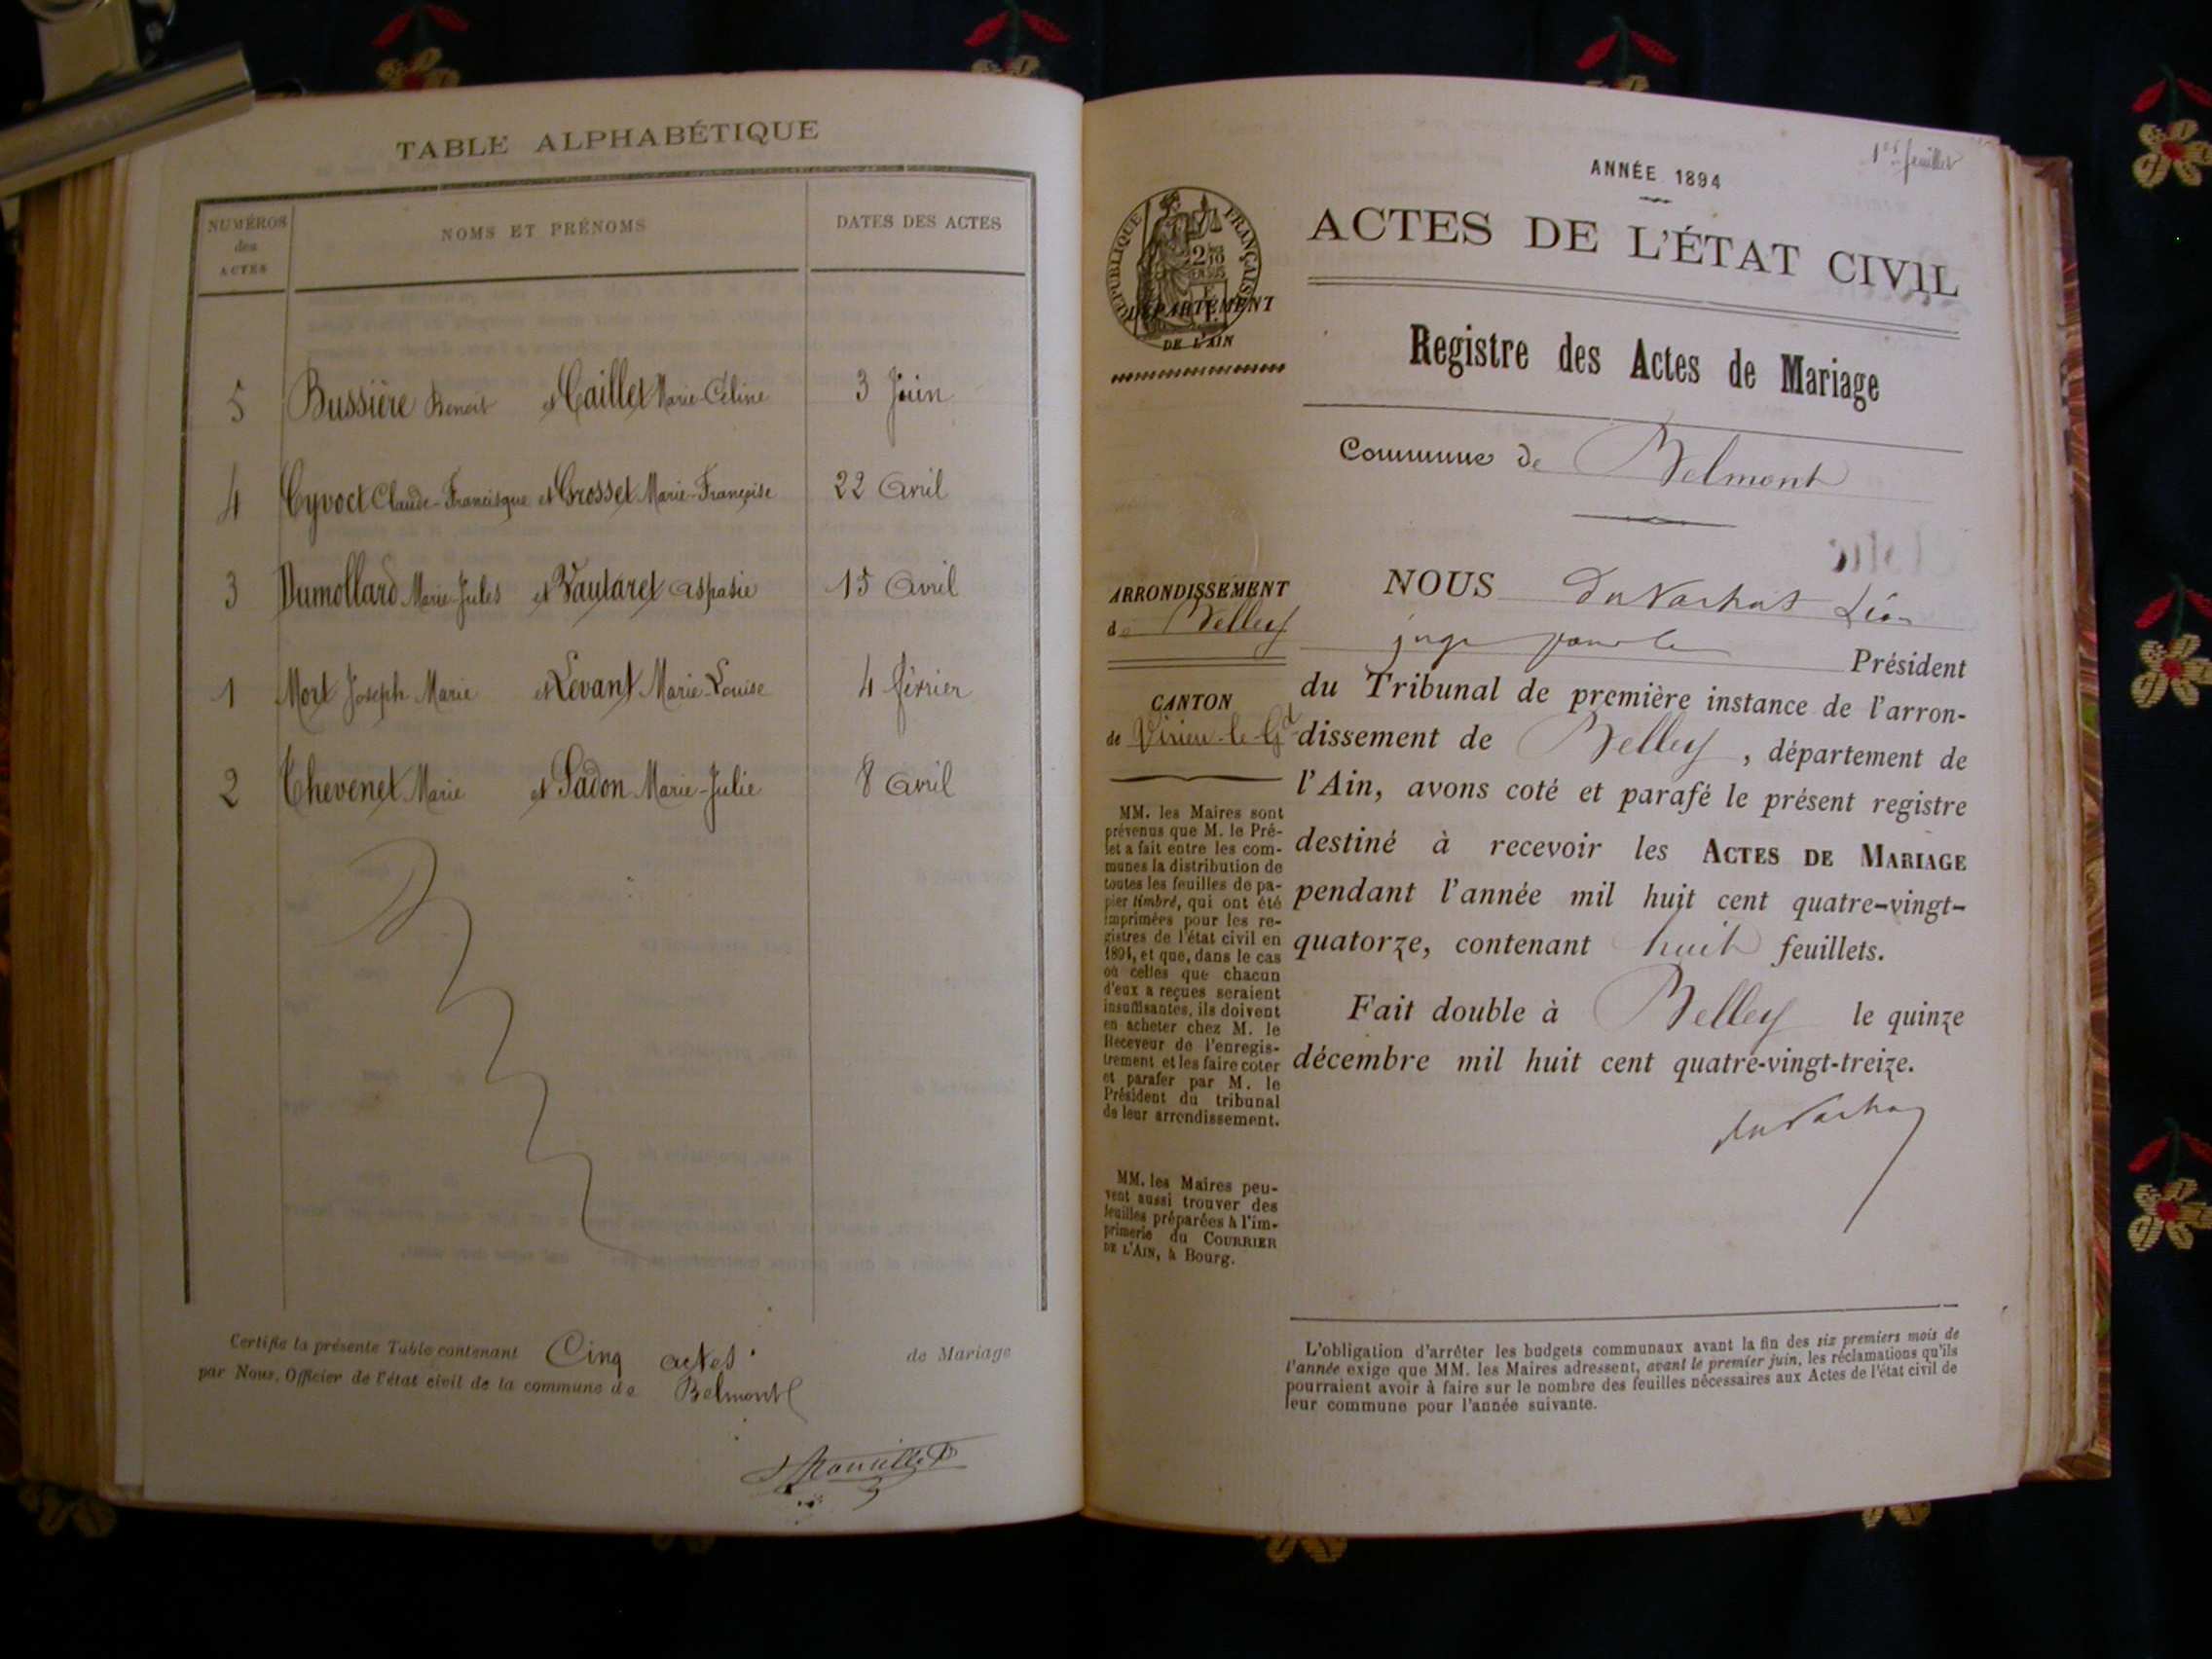 TABLE ALPHABÉTIQUE
NUMÉROS
des
ACTES
NOMS ET PRÉNOMS
DATES DES ACTES
5 Bussière Benoit et Caillet Marie-Céline 3 Juin
4 Cyvoct Claude-Francisque et Grosset Marie-Françoise 22 Avril
3 Dumollard Marie-Jules et Vautaret Aspasie 15 Avril
1 Mort Joseph Marie et Levant Marie-Louise 4 février
2 Thevenet Marie et Sadon Marie-Julie 8 Avril
Certifie la présente Table contenant Cinq actes de Mariage
par Nous, Officier de l'état civil de la commune de Belmont
1er feuillet
ANNÉE 1894
ACTES DE L'ÉTAT CIVIL
RÉPUBLIQUE FRANÇAISE
2/10
EN SUS
DÉPARTEMENT
DE L'AIN
Registre des Actes de Mariage
Commune de Belmont
ARRONDISSEMENT
de Belley
CANTON
de Virieu-le-Gd
MM. les Maires sont
prévenus que M. le Pré-
fet a fait entre les com-
munes la distribution de
toutes les feuilles de pa-
pier timbré, qui ont été
imprimées pour les re-
gistres de l'état civil en
1894, et que, dans le cas
où celles que chacun
d'eux a reçues seraient
insuffisantes, ils doivent
en acheter chez M. le
Receveur de l'enregis-
trement et les faire coter
et parafer par M. le
Président du tribunal
de leur arrondissement.
MM. les Maires peu-
vent aussi trouver des
feuilles préparées à l'im-
primerie du COURRIER
DE L'AIN, à Bourg.
NOUS Du Vachat Léon
juge pour le Président
du Tribunal de première instance de l'arron-
dissement de Belley, département de
l'Ain, avons coté et parafé le présent registre
destiné à recevoir les ACTES DE MARIAGE
pendant l'année mil huit cent quatre-vingt-
quatorze, contenant huit feuillets.
Fait double à Belley le quinze
décembre mil huit cent quatre-vingt-treize.
du Vachat
L'obligation d'arrêter les budgets communaux avant la fin des six premiers mois de
l'année exige que MM. les Maires adressent, avant le premier juin, les réclamations qu'ils
pourraient avoir à faire sur le nombre des feuilles nécessaires aux Actes de l'état civil de
leur commune pour l'année suivante.